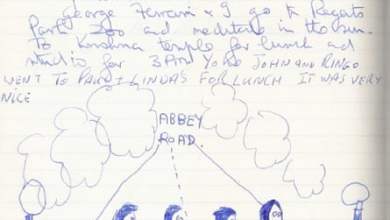 George Ferrari & I go to Regents
Park Zoo and meditate in the sun.
To Krishna temple for lunch and
studio for 3AM YOKO JOHN AND RINGO
WENT TO PAUL LINDAS FOR LUNCH IT WAS VERY
NICE
ABBEY
ROAD.